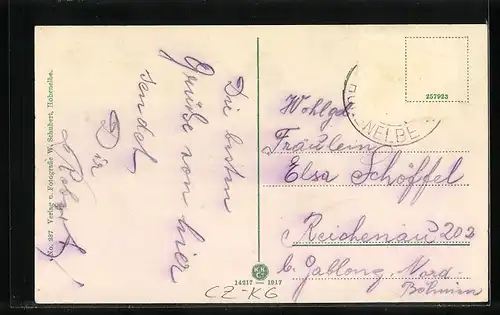 No. 287. Verlag v. Fotografie W. Schubert, Hohenelbe.
Die besten
Grüße von hier
sendet
Dir
Robert
257923
HOHENELBE
Wohlgeb
Fräulein
Elsa Schöffel
Reichenau 202
b. Gablonz, Nord-
Böhmen
K.K.
C?
14217 — 1917
CZ-KG